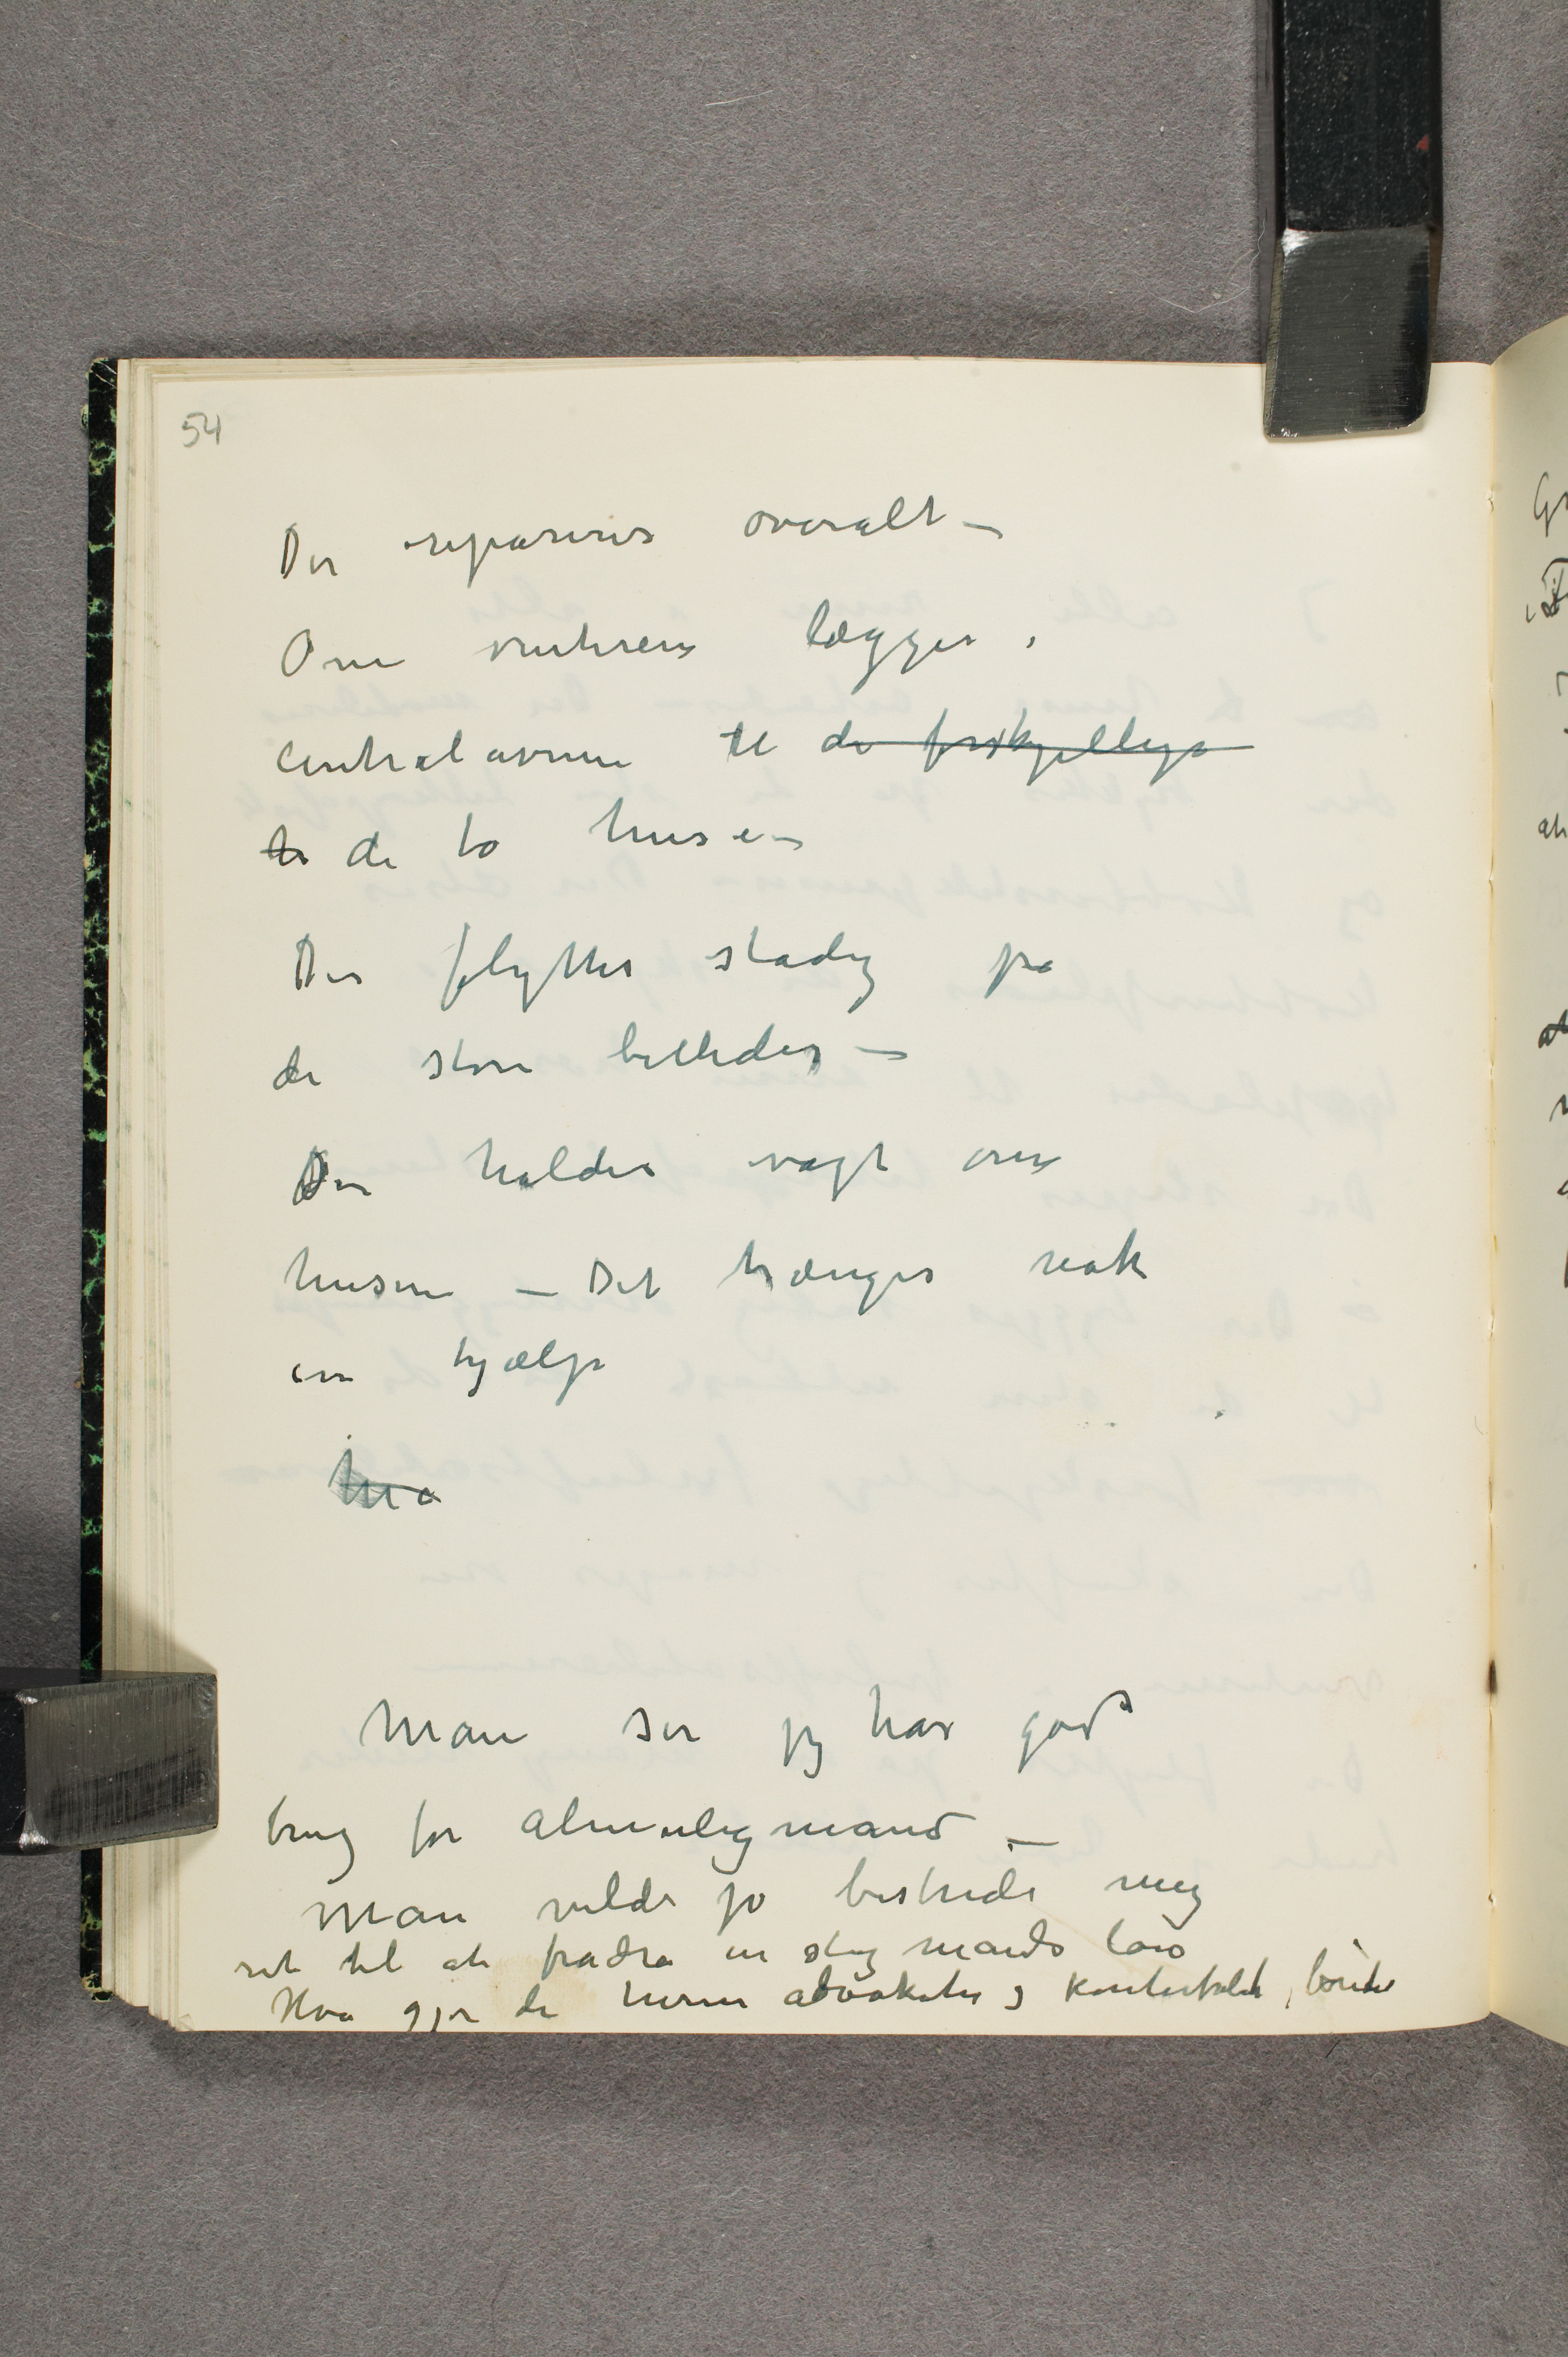 54
Der repareres overalt –
Om vinteren lægges i
centralovnene til de forskjellige
ti de to huse –
Der flyttes stadig på
de store billeder –
Der holdes vagt om
husene – Det trænges nok
en hjælp
Ma
Man ser jeg har god
brug for almuligmand –
Man vilde jo bestride mig
ret til at fradra en slig mands løn
Hva gjør de herrer advokater og kontorfolk, bønder